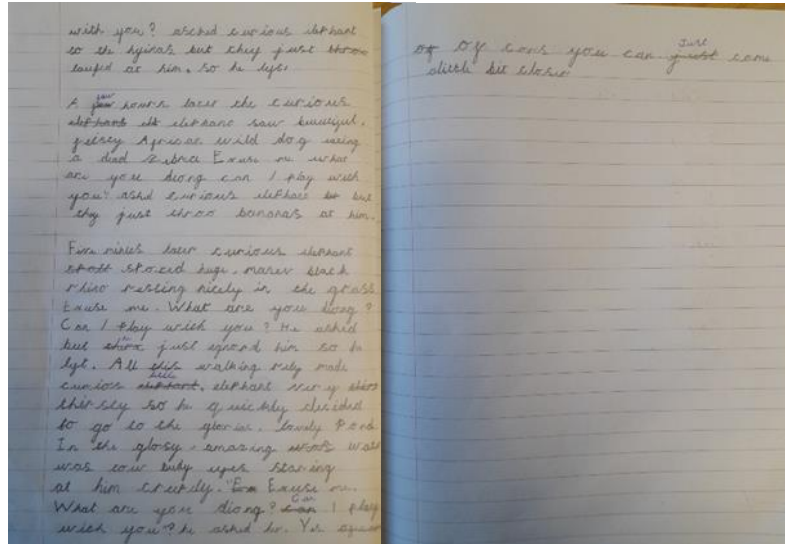 with you? asked curious elephant
to the hyinas but they just
laufed at him. so he left.
A few hours later the curious
elephant saw beautiful,
African wild dog
a dead zebra Exuse me what
are you diong can I play with
you? askd curious elephant but
they just throo bananas at him.
Five minits later curious elephant
spoted huge, black
rhino resting nicely in the grass
Exuse me. What are you diong?
Can I play with you? He asked
but just ignord him so he
left. All this walking rely made
curios little elephant very
thirsty so he quickly decided
to go to the glorius, lovely Pond.
In the glosy, amazing
was tow eyes staring
at him cruely. "Exuse me.
What are you diong? Can I play
with you? he asked her. Yes
of cors you can just come
alittle bit closer